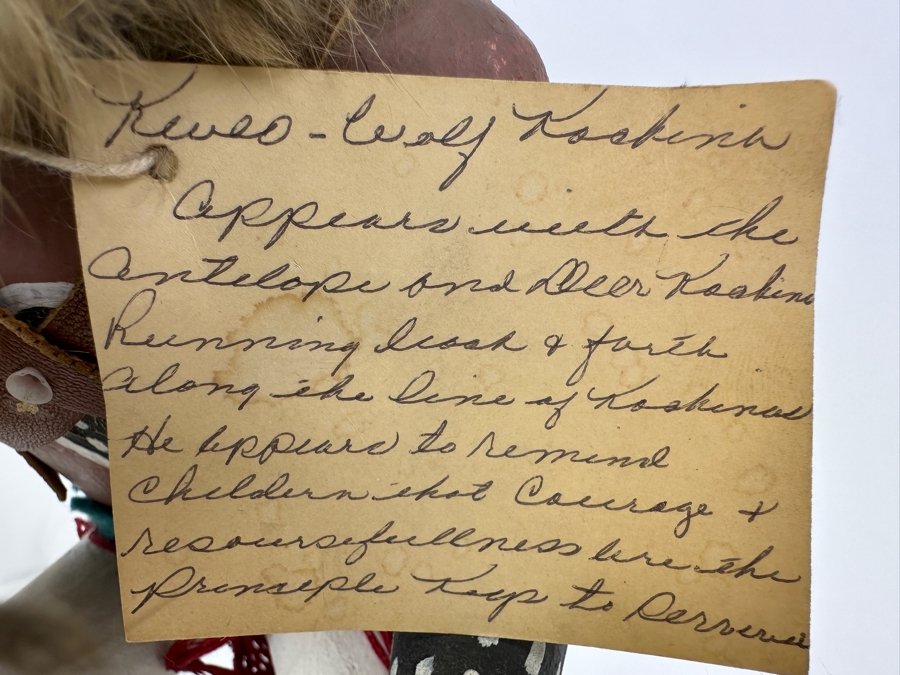 Kweo - Wolf Kachina
Appears with the
Antelope and Deer Kachina
Running back & forth
Along the line of Kachinas
He appears to remind
Childern that Courage &
resoursefullness are the
Princeple Keys to